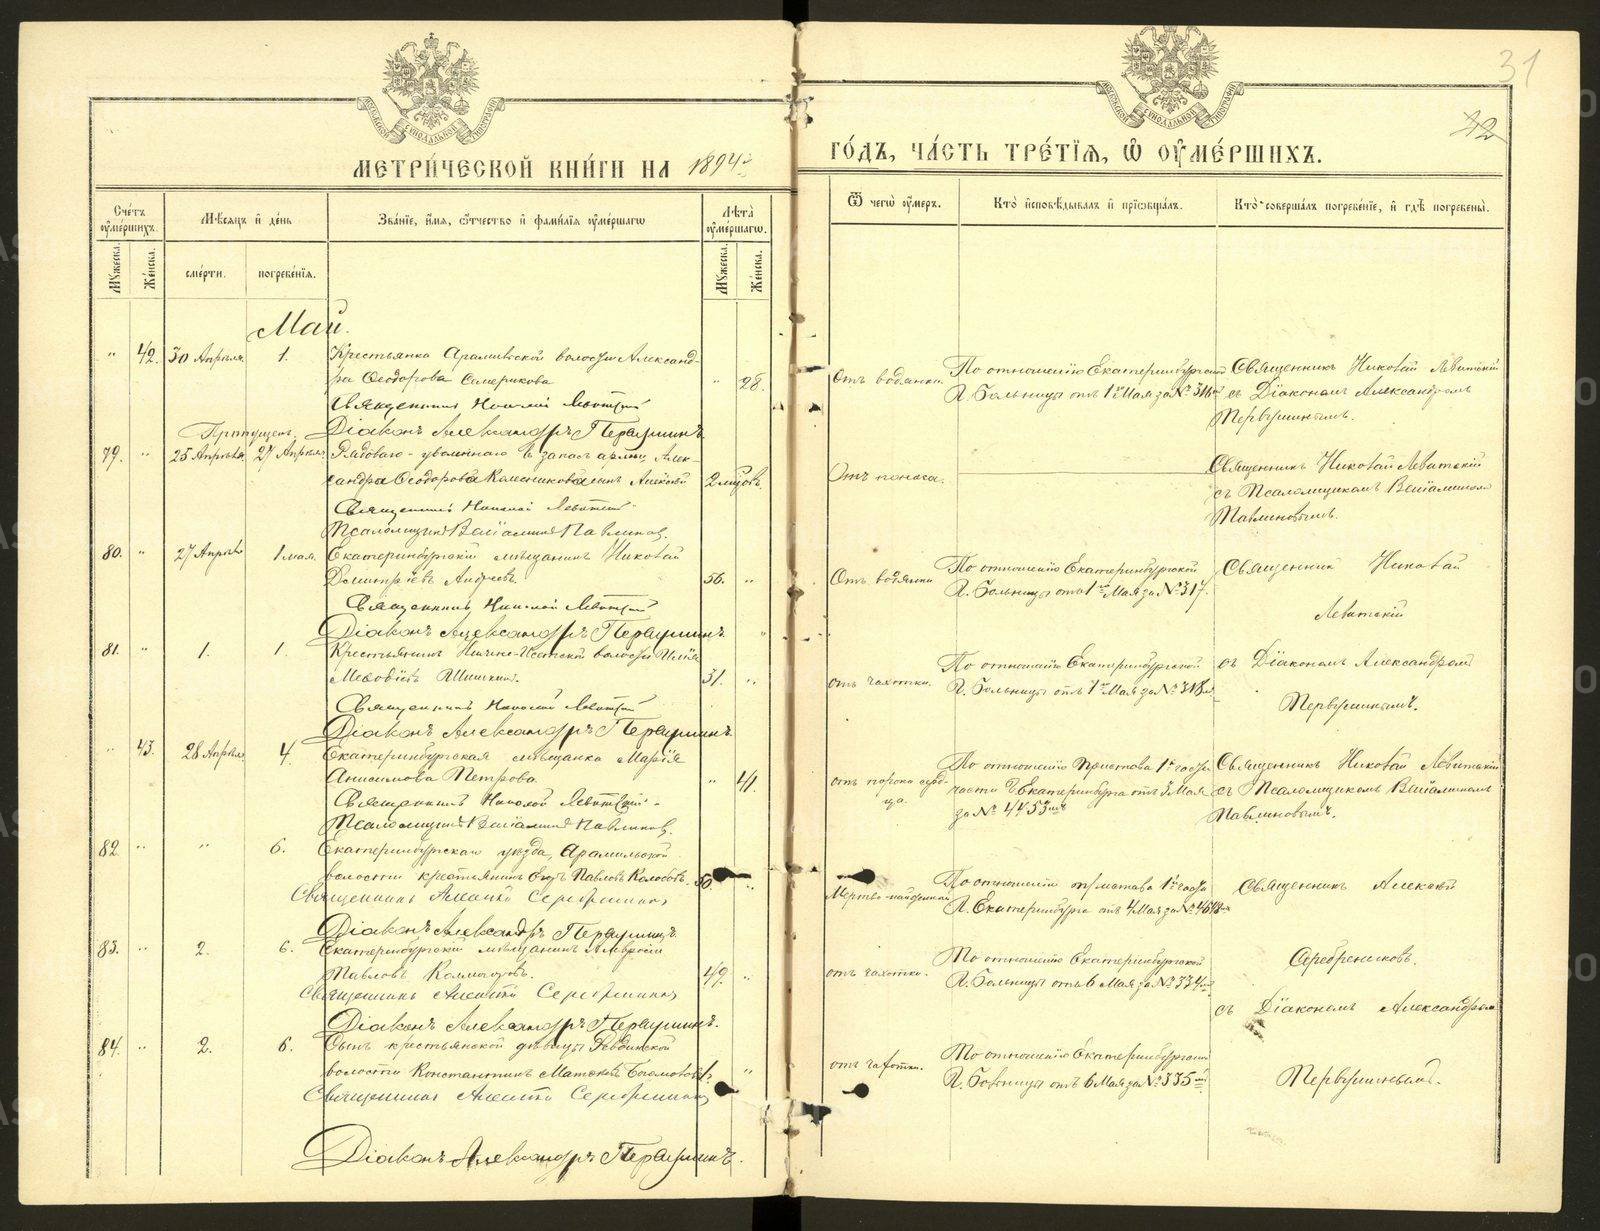 МЕТРИ́ЧЕСКОЙ КНИ́ГИ НА 1894й
ГО́ДЪ, ЧА́СТЬ ТРЕ́ТІЯ, Ѽ ОУ҆МЕ́РШИХЪ.
31
32
Сче́тъ оу҆ме́ршихъ.
Мѣ́сяцъ и҆ де́нь
Зва́ніе, и҆́мя, ѻ҆́тчество и҆ фами́лія оу҆ме́ршагѡ
Лѣта̀ оу҆ме́ршагѡ.
Ѿ чегѡ̀ оу҆́меръ.
Кто̀ и҆сповѣ́дывалъ и҆ прїѡбща́лъ.
Кто̀ соверша́лъ погребе́ніе, и҆ гдѣ̀ погребены̀.
Му́жеска.
Же́нска.
сме́рти.
погребе́нія.
Му́жеска.
Же́нска.
Май.
" 42. 30 Апрѣля. 1. Крестьянка Арамильской волости Александ-
ра Ѳеодорова Семерикова " 28.
Священникъ Николай Левитскій
Діаконъ Александръ Первушинъ.
Отъ водянки.
По отношенію Екатеринбургской
Г. Больницы отъ 1го Мая за № 316м
Священникъ Николай Левитскій
съ Діакономъ Александромъ
Первушинымъ.
Пропущен.
79. " 25 Апрѣля. 27 Апрѣля. Рядоваго уволеннаго въ запасъ арміи Алек-
сандра Ѳеодорова Колесникова сынъ Алексѣй 2 мѣсяцовъ.
Священникъ Николай Левитскій
Псаломщикъ Веніаминъ Павлиновъ.
Отъ поноса.
Священникъ Николай Левитскій
съ Псаломщикомъ Веніаминомъ
Павлиновымъ.
80. " 27 Апрѣля 1 мая. Екатеринбургскій мѣщанинъ Николай
Димитріевъ Андреевъ 56. "
Священникъ Николай Левитскій
Діаконъ Александръ Первушинъ.
Отъ водянки
По отношенію Екатеринбургской
Г. Больницы отъ 1го Мая за № 317.
Священник Николай
Левитскій
81. " 1. 1. Крестьянинъ Нижне-Исетской волости Илія
Меѳодіевъ Шишкинъ. 31. "
Священникъ Николай Левитскій
Діаконъ Александръ Первушинъ.
отъ чахотки.
По отношенію Екатеринбургской
Г. Больницы отъ 1го Мая за № 318м
съ Діакономъ Александромъ
Первушинымъ.
" 43. 28 Апрѣля 4. Екатеринбургская мѣщанка Марія
Анисимова Петрова. " 41.
Священникъ Николай Левитскій
Псаломщикъ Веніаминъ Павлиновъ.
отъ порока серд-
ца.
По отношенію Пристава 1й гор.
части г. Екатеринбурга отъ 3 Мая
за № 4453мъ
Священникъ Николай Левитскій
съ Псаломщикомъ Веніаминомъ
Павлиновымъ.
82 " " 6. Екатеринбургскаго уѣзда, Арамильской
волости крестьянинъ Павловъ 50. "
Священникъ Алексѣй Серебренниковъ
Діаконъ Александръ Первушинъ.
Мертво-найденный
По отношенію пристава 1й
Г. Екатеринбурга отъ 4 Мая за №
Священникъ Алексѣй
83. " 2. 6. Екатеринбургскій мѣщанинъ Амвросій
Павловъ Колмогоровъ. 49. "
Священникъ Алексѣй Серебренниковъ
Діаконъ Александръ Первушинъ.
отъ чахотки.
По отношенію Екатеринбургской
Г. Больницы отъ 6 Мая за № 334м
Серебренниковъ.
съ Діакономъ Александромъ
84. " 2. 6. Сынъ крестьянской дѣвицы Ревдинской
волости Константинъ "
Священникъ Алексѣй Серебренниковъ
Діаконъ Александръ Первушинъ.
отъ чахотки.
По отношенію Екатеринбургской
Г. Больницы отъ 6 Мая за № 335м
Первушинымъ.